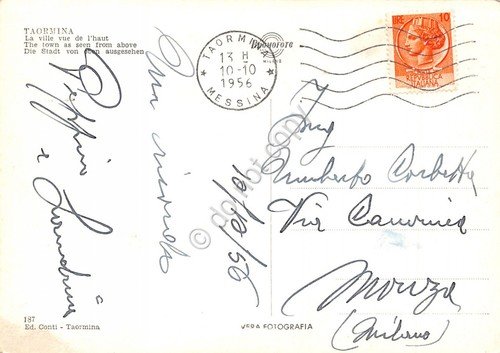 TAORMINA
La ville vue de l'haut
The town as seen from above
Die Stadt von oben ausgesehen
TAORMINA
13 H
10·10
1956
MESSINA
Fotocelere
LIRE 10
REPUBBLICA
ITALIANA
Un ricordo
10/10/56
Peppino
e
Ing
Umberto Corbetta
Via Canonica
Monza
(Milano)
© do not copy
187
Ed. Conti - Taormina
VERA FOTOGRAFIA